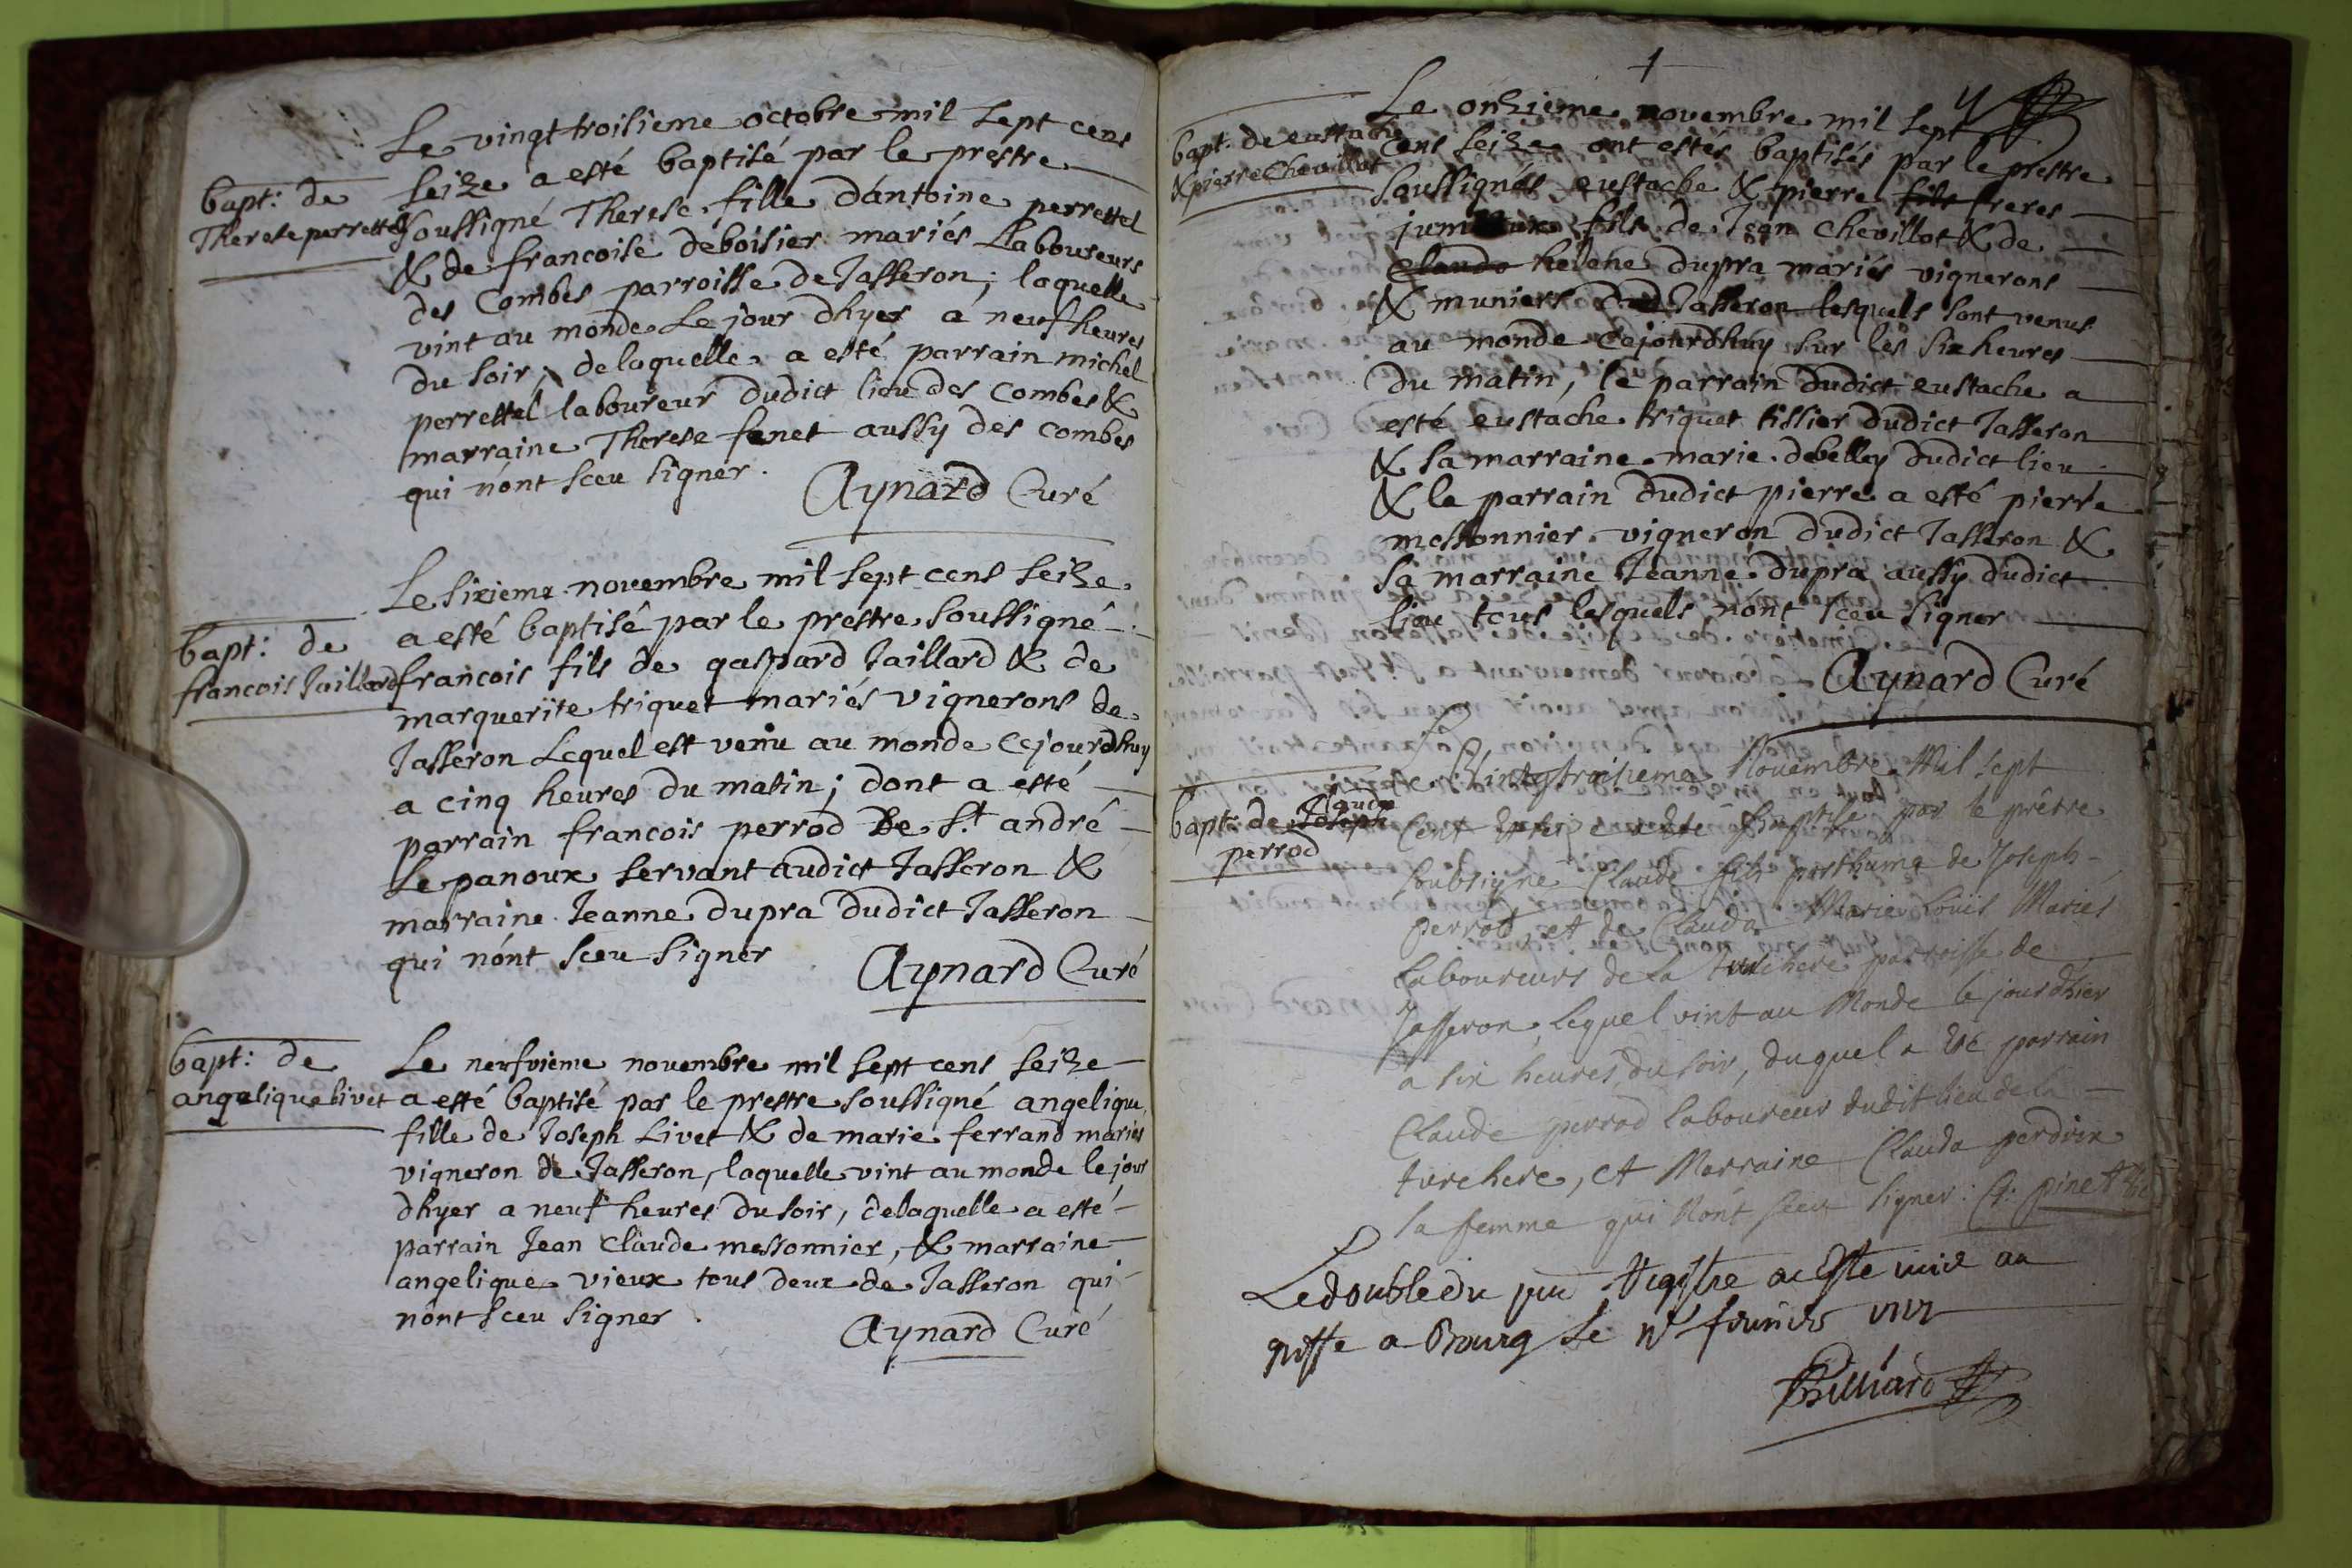 Le vingt troisieme octobre mil sept cens
seize a esté baptisé par le prestre
bapt: de
Therese perrettel
soussigné Therese fille d'antoine perrettel
& de francoise déboisier mariés Laboureurs
des Combes parroisse de Jasseron; laquelle
vint au monde Le jour dhyer a neuf heures
du soir; delaquelle a esté parrain michel
perrettel laboureur dudict lieu des Combes &
marraine Therese fenet aussy des Combes
qui n'ont sceu signer.
Aynard Curé
Le sixieme novembre mil sept cens seize
bapt: de
francois Jaillard
a esté baptisé par le prestre soussigné
francois fils de gaspard Jaillard & de
marguerite triquet mariés vignerons de
Jasseron Lequel est venu au monde cejourdhuy
a cinq heures du matin; dont a esté
parrain francois perrod De St andré
Le panoux servant audict Jasseron &
marraine Jeanne dupra dudict Jasseron
qui n'ont sceu signer
Aynard Curé
bapt: de
angelique livet
Le neufvieme novembre mil sept cens seize
a esté baptisé par le prestre soussigné angelique
fille de Joseph Livet & de marie ferrand mariés
vigneron de Jasseron, laquelle vint au monde le jour
dhyer a neuf heures du soir, delaquelle a esté
parrain Jean claude messonnier, & marraine
angelique vieux tous deux de Jasseron qui
n'ont sceu signer.
Aynard Curé
Le onzieme novembre mil sept
bapt: de eustache
& pierre Chevillot
cens seize ont estés baptisés par le prestre
soussignés eustache & pierre fils freres
jumeaux fils de Jean Chevillot & de
Claude helene dupra mariés vignerons
& muniers dud Jasseron lesquels sont venus
au monde cejourdhuy sur les six heures
du matin, le parrain dudict eustache a
esté eustache triquet tissier dudict Jasseron
& sa marraine marie debelley dudict lieu
& le parrain dudict pierre a esté pierre
messonnier vigneron dudict Jasseron &
sa marraine Jeanne dupra aussy dudict
lieu tous lesquels n'ont sceu signer
Aynard Curé
Le Vintgtroisieme Novembre Mil sept
bapt: de Joseph
claude
perrod
Cent et seize a été Baptisé par le prêtre
soubsigné Claude fils posthume de Joseph
perrod, et de Clauda Marie Louis Mariés
Laboureurs de la turchere parroisse de
Jasseron, Lequel vint au Monde le jour d'hier
a six heures du soir, duquel a été parrain
Claude perrod laboureur dudit lieu de la
turchere, et Marraine Clauda perdrix
sa femme qui N'ont sceu signer: pinet
Le double du pnt Registre a esté mis au
greffe a Bourg Le
Brilliard